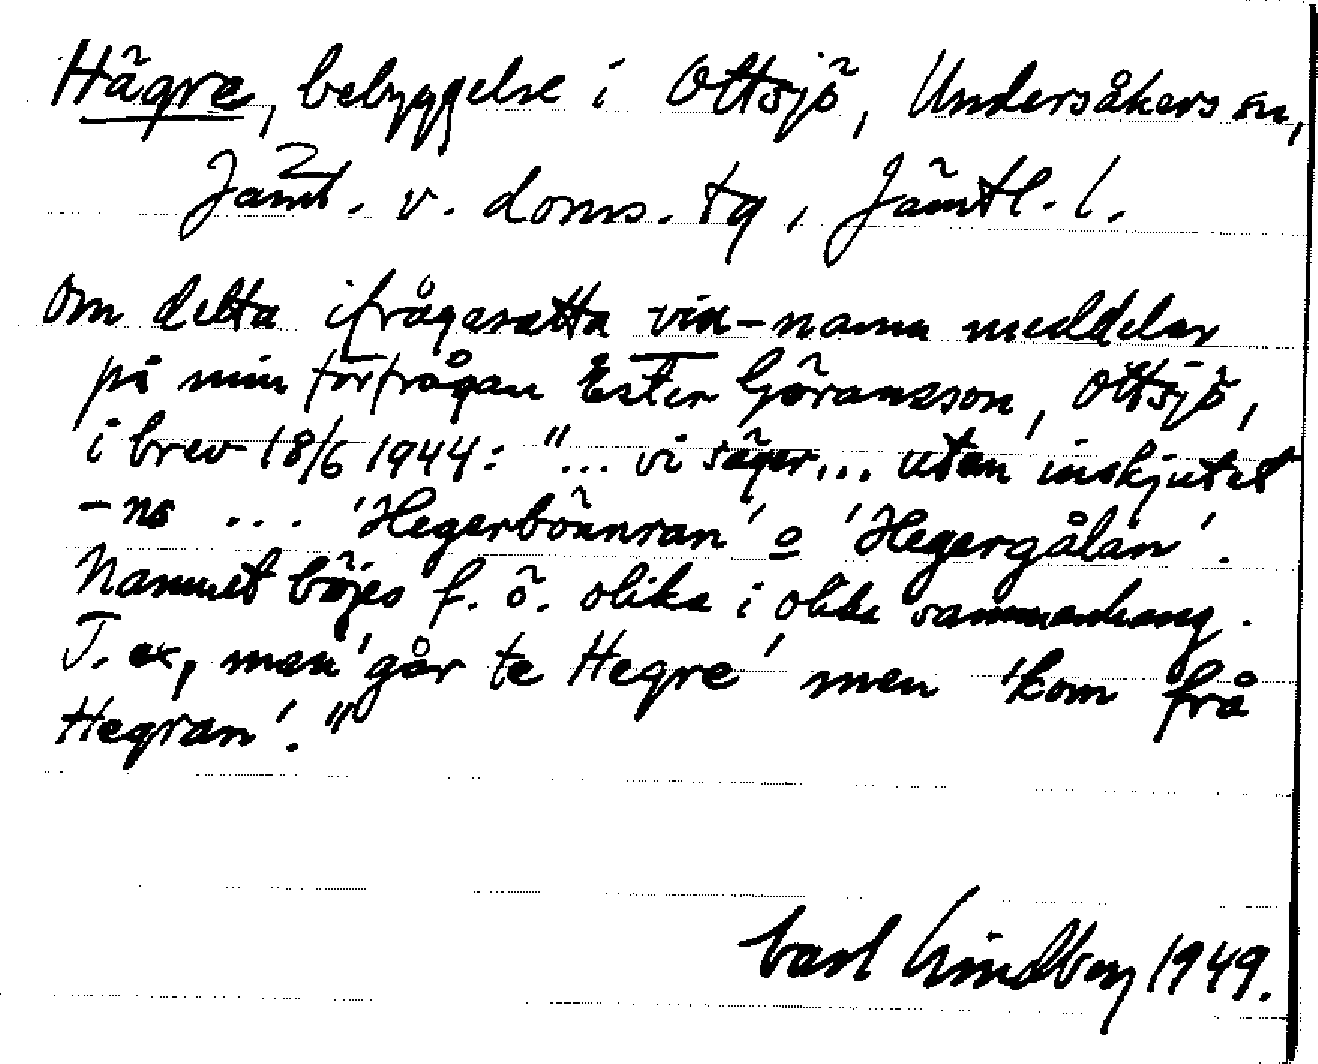 Hägre, bebyggelse i Ottsjö, Undersåkers sn,
Jämt. v. doms. tg, Jämtl. l.
Om detta ifrågasatta vin-namn meddelar
på min förfrågan Ester Göransson, Ottsjö,
i brev 18/6 1944: "... vi säger... utan inskjutet
-ns ... 'Hegerbönnran' o 'Hegergålan'.
Namnet böjes f. ö. olika i olika sammanhang.
T. ex, man 'går te Hegre' men 'kom frå
Hegran'."
Carl Lindberg 1949.